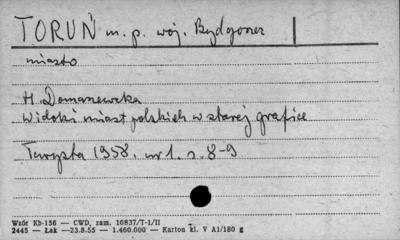 TORUŃ m. p. woj. Bydgoszcz
miasto
H. Domaniewska
Widoki miast polskich w starej grafice
Turysta 1958. nr 1. s. 8-9
Wzór Kb-156 — CWD, zam. 16837/T-1/II
2445 — Łak —23.8.55 — 1.460.000 — Karton kl. V A1/180 g